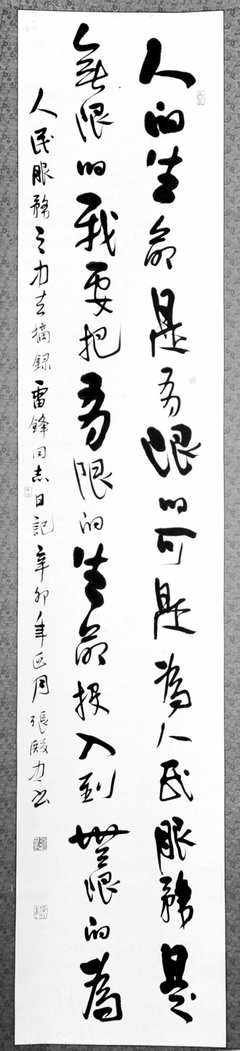 人的生命是有限的可是為人民服務是
無限的我要把有限的生命投入到無限的為
人民服務之力去摘録雷鋒同志日記辛卯年正月張殿力書